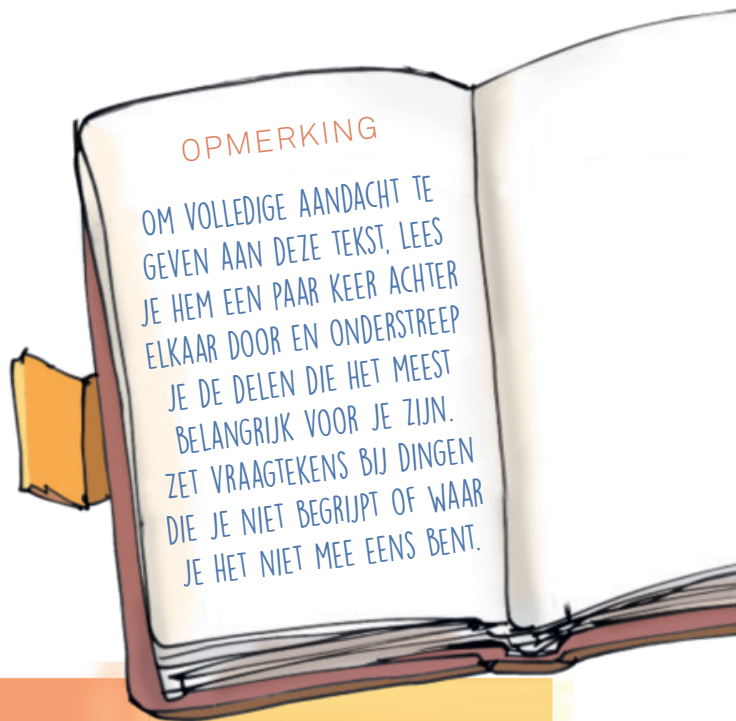 OPMERKING
OM VOLLEDIGE AANDACHT TE
GEVEN AAN DEZE TEKST, LEES
JE HEM EEN PAAR KEER ACHTER
ELKAAR DOOR EN ONDERSTREEP
JE DE DELEN DIE HET MEEST
BELANGRIJK VOOR JE ZIJN.
ZET VRAAGTEKENS BIJ DINGEN
DIE JE NIET BEGRIJPT OF WAAR
JE HET NIET MEE EENS BENT.